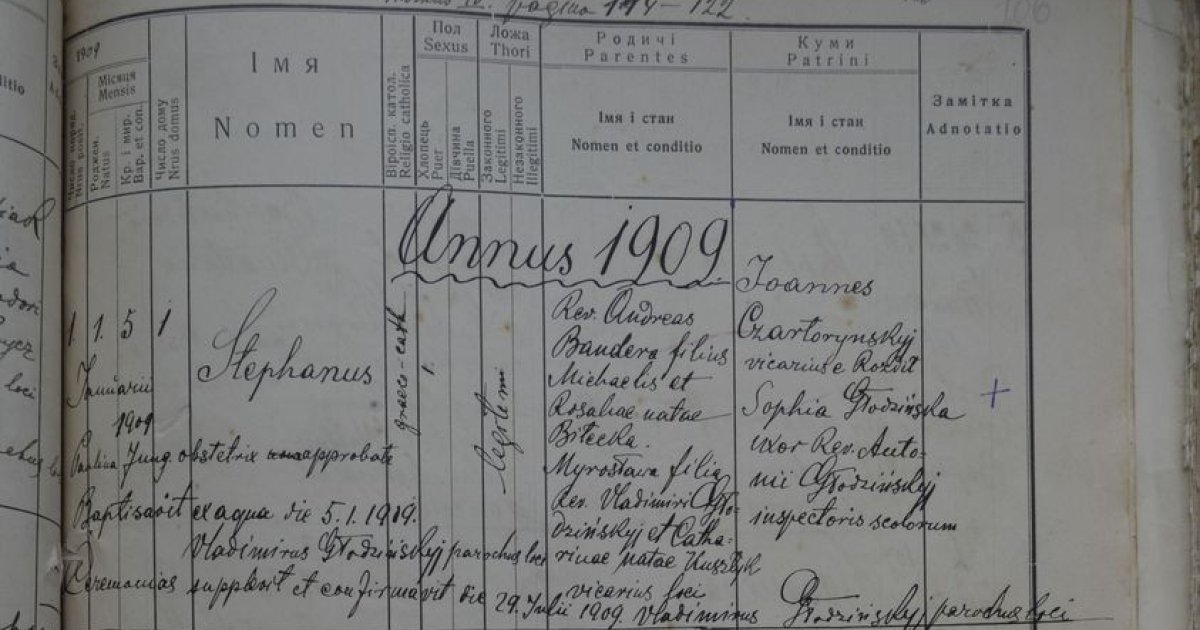 pagina 114-122
106
1909
Місяця
Mensis
Роджен.
Natus
Кр. і мир.
Bap. et con.
Число дому
Nrus domus
Імя
Nomen
Віроісп. катол.
Religio catholica
Пол
Sexus
Хлопець
Puer
Дівчина
Puella
Ложа
Thori
Законного
Legitimi
Незаконного
Illegitimi
Родичі
Parentes
Імя і стан
Nomen et conditio
Куми
Patrini
Імя і стан
Nomen et conditio
Замітка
Adnotatio
Annus 1909
1. 1. 5 1
Januarii
1909
Stephanus
graeco-cath
1.
legitimi
Rev. Andreas
Bandera filius
Michaelis et
Rosaliae natae
Biłecka.
Myrosława filia
Rev. Vladimiri Gło-
dzińskyj et Catha-
rinae natae Kuszlyk
Joannes
Czartorynskyj
vicarius e Rozdił
Sophia Głodzińska
uxor Rev. Anto-
nii Głodzińskyj
inspectoris scolorum
+
Paulina Jung obstetrix approbata
Baptisavit ex aqua die 5.1.1919.
Vladimirus Głodzińskyj parochus loci
vicarius loci
Ceremonias supplevit et confirmavit die 29. Julii 1909. Vladimirus Głodzińskyj parochus loci